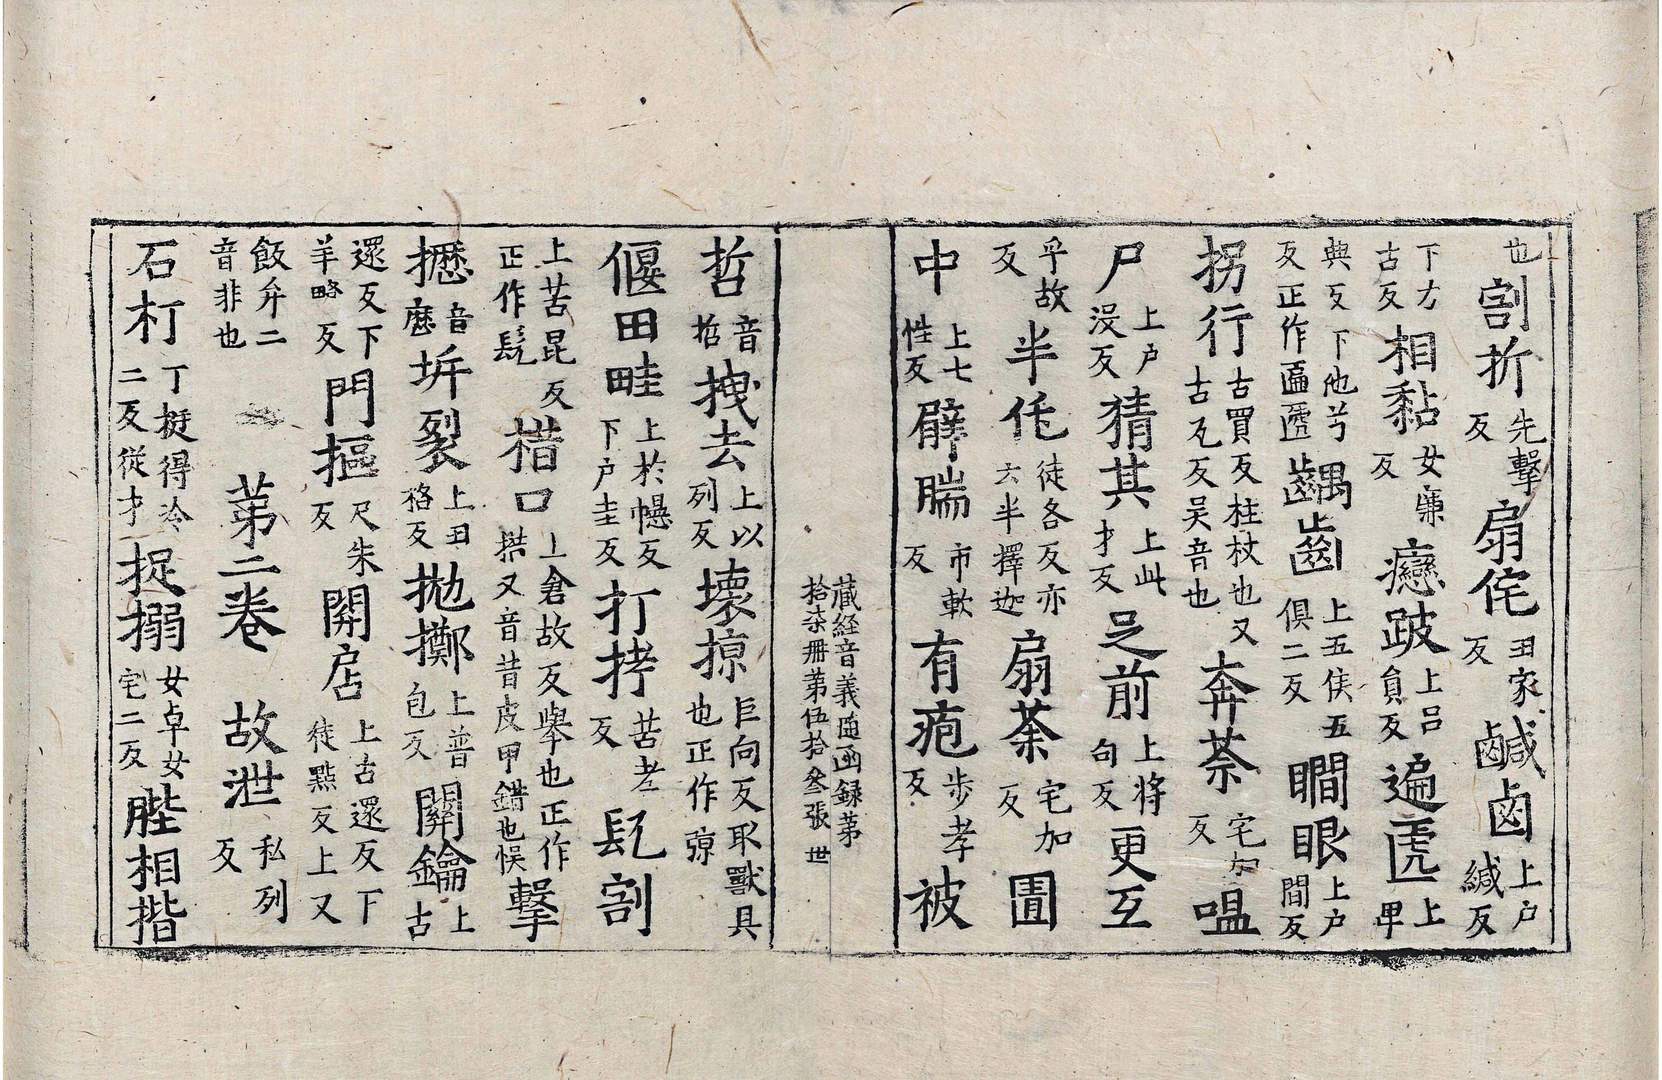 也割折先擊反扇侘丑家反鹹鹵上户緘反
下古反相黏女廉反癦跛上吕負反遍虒上
典反下他兮反正作匾㔸齵齒上五侯五俱二反瞯眼上户間反
拐行古買反柱杖也又古瓦反吴音也奔荼宅加反嗢
尸上户没反猜其上此才反𠯁前上将句反更互
乎故反半侂徒各反亦云半擇迦扇荼宅加反圊
中上七性反䠋腨市軟反有疱步孝反被
藏経音義随函録第拾柒冊第伍拾叁張 世
哲音拽去上以列反壊掠巨向反取獸具也正作弶
偃田畦上於幰反下户圭反打拷苦老反髡割
上苦昆反正作髡措口上倉故反舉也正作措又音昔皮甲錯也悮擊
攊音歷坼裂上丑格反抛擲上普包反關鑰上古
還反下羊略反門樞尺朱反關扂上古還反下徒點反上又
飯弁二音非也
第二卷 故泄私列反
石朾丁挺得冷二反從扌捉搦女卓女宅二反䏶相揩